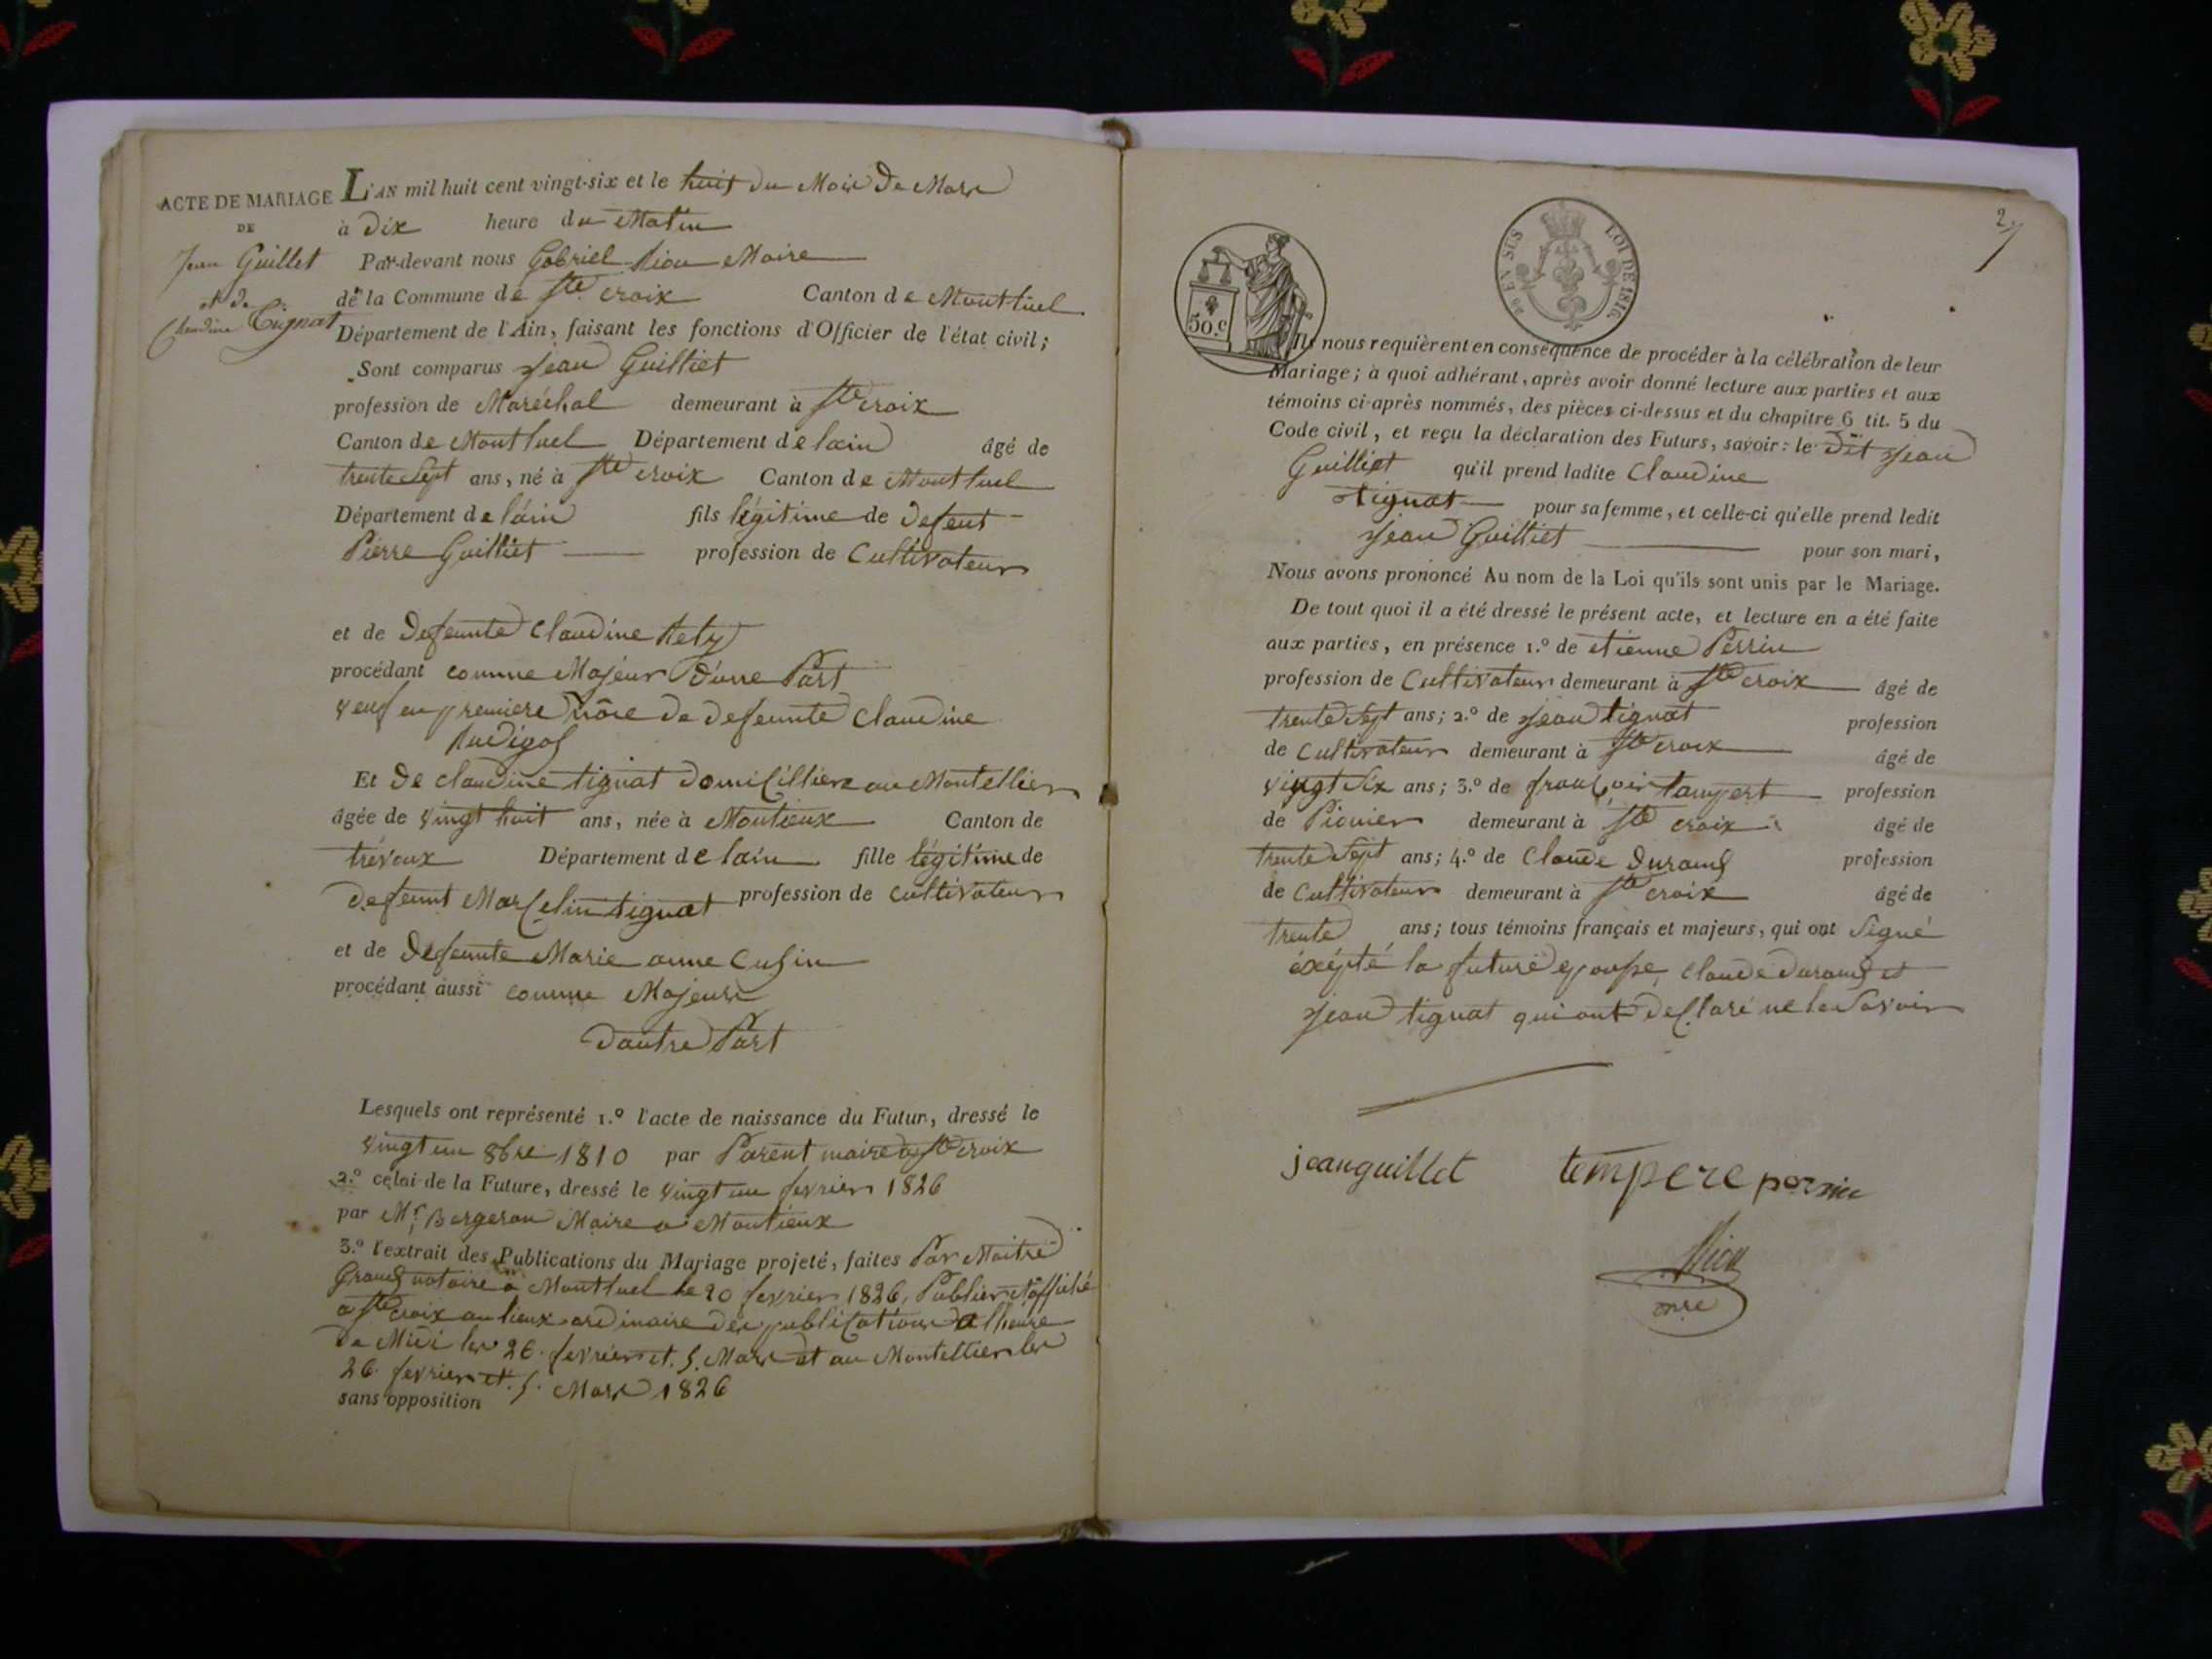 ACTE DE MARIAGE
DE
Jean Guillet
et de
Claudine Tignat
L'AN mil huit cent vingt-six et le huit du Mois De Mars
à Dix heure du Matin
Par-devant nous Gabriel Riou Maire
de la Commune de Ste croix Canton de Montluel
Département de l'Ain, faisant les fonctions d'Officier de l'état civil;
Sont comparus Jean Guilliet
profession de Maréchal demeurant à Ste croix
Canton de Montluel Département de lain âgé de
trente Sept ans, né à Ste croix Canton de Montluel
Département de láin fils légitime de defeut
Pierre Guilliet profession de Cultivateur
et de Defeunte Claudine Rety
procédant comme Majeur D'une Part
veuf en premiere nôce de defeunte Claudine
Et De claudine tignat Domicillière au Montellier
âgée de vingt huit ans, née à Montieux Canton de
trévoux Département de lain fille légitime de
Defeunt Marcelin tignat profession de cultivateur
et de Defeunte Marie anne Cusin
procédant aussi comme Majeure
Dautre Part
Lesquels ont représenté 1.º l'acte de naissance du Futur., dressé le
vingt un 8bre 1810 par Parent maire a Ste croix
2.º celui de la Future, dressé le vingt un fevrier 1826
par Mr Bergeron Maire a Montieux
3.º l'extrait des Publications du Mariage projeté, faites Par Maitre
Grand notaire a Montluel le 20 fevrier 1826, Publier et affiché
a Ste croix au lieux ordinaire des publications a lheure
de Midi les 26 fevrier et 5. Mars et au Montellier les
26 fevrier et 5. Mars 1826
sans opposition
2
50.c
EN SUS LOI DE 1816
Ils nous requièrent en conséquence de procéder à la célébration de leur
Mariage; à quoi adhérant, après avoir donné lecture aux parties et aux
témoins ci-après nommés, des pièces ci-dessus et du chapitre 6 tit. 5 du
Code civil, et reçu la déclaration des Futurs, savoir: le Dit Jean
Guilliet qu'il prend ladite Claudine
tignat pour sa femme, et celle-ci qu'elle prend ledit
Jean Guilliet pour son mari,
Nous avons prononcé Au nom de la Loi qu'ils sont unis par le Mariage.
De tout quoi il a été dressé le présent acte, et lecture en a été faite
aux parties, en présence 1.º de etienne Perrin
profession de Cultivateur demeurant à Ste croix âgé de
trente Sept ans; 2.º de Jean tignat profession
de Cultivateur demeurant à Ste croix âgé de
vingt Six ans; 3.º de françois profession
de Pionier demeurant à Ste croix âgé de
trente Sept ans; 4.º de Claude Durand profession
de Cultivateur demeurant à Ste croix âgé de
trente ans; tous témoins français et majeurs, qui ont Signé
éxépté la future epouse, claude durand et
Jean tignat qui ont déclaré ne le Savoir
jeanguillet tempere perrin
Riou
mre